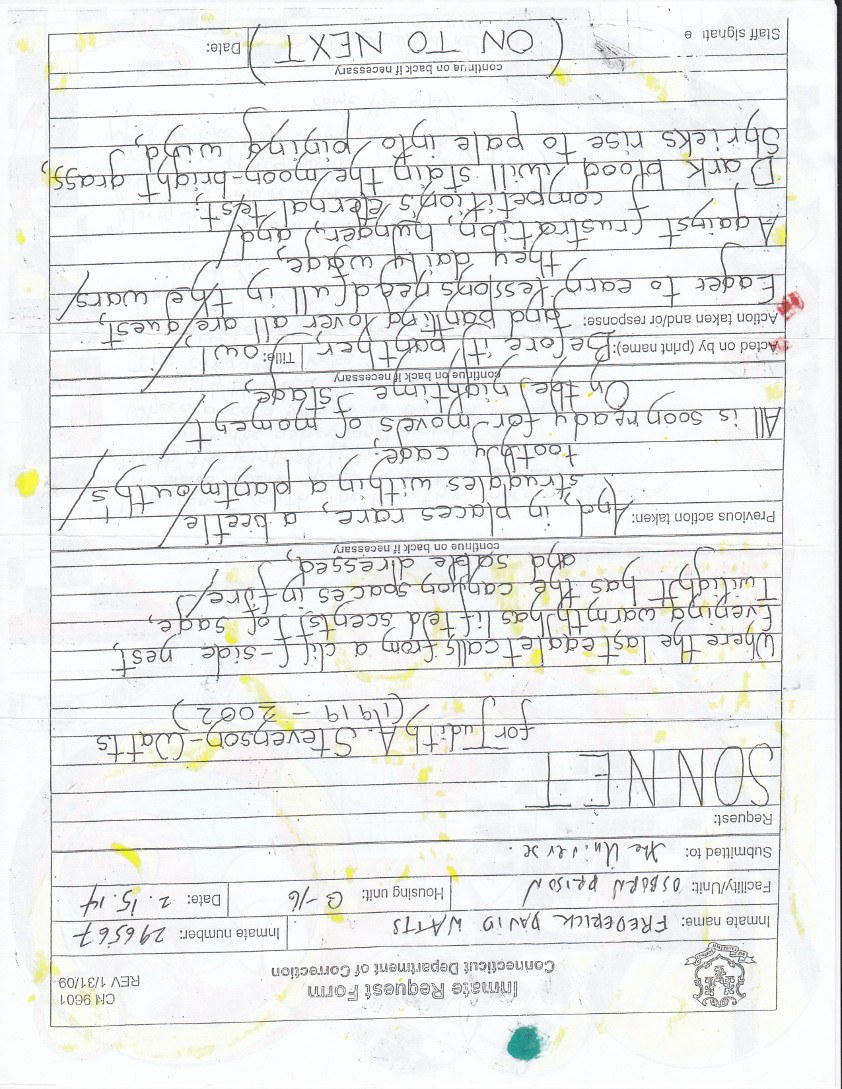 CN 9601
REV 1/31/09
Inmate Request Form
Connecticut Department of Correction
Inmate name: FREDERICK DAVID WATTS
Inmate number: 296567
Facility/Unit: OSBORN PRISON
Housing unit: Q-16
Date: 2.15.14
Submitted to: the Universe.
Request:
SONNET
for Judith A. Stevenson-Watts
(1919 - 2002)
Where the last eaglet calls from a cliff-side nest,
Evening warmth has lifted scents of sage,
Twilight has the canyon spaces in fire
and sable dressed,
continue on back if necessary
Previous action taken: And, in places rare, a beetle
struggles within a plantmouth's
toothy cage.
All is soon ready for moves of moment
On the nightime stage,
continue on back if necessary
Acted on by (print name): Before it, panther,
Title: owl
Action taken and/or response: and panting lover all are quest,
Eager to earn lessons needful in the wars
they daily wage,
Against frustration, hunger, and
competition's eternal test;
Dark blood will stain the moon-bright grass,
Shrieks rise to pale into pining wind,
continue on back if necessary
Staff signature
(ON TO NEXT)
Date: